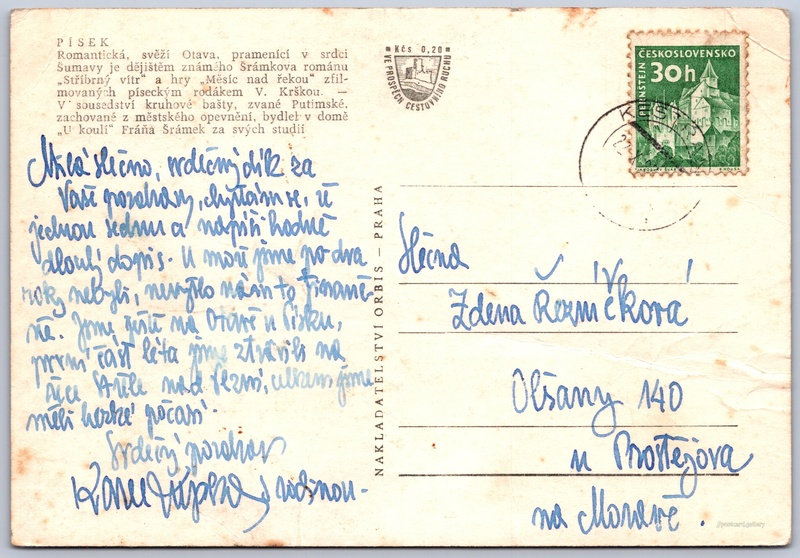 PÍSEK
Romantická, svěží Otava, pramenící v srdci
Šumavy je dějištěm známého Šrámkova románu
„Stříbrný vítr" a hry „Měsíc nad řekou" zfil-
movaných píseckým rodákem V. Krškou. —
V sousedství kruhové bašty, zvané Putimské,
zachované z městského opevnění, bydlel v domě
„U koulí" Fráňa Šrámek za svých studií
Milá slečno, srdečný dík za
Vaše pozdravy, chystám se, že
jednou sednu a napíši hodně
dlouhý dopis. U moře jsme po dva
roky nebyli, nevyšlo nám to finanč-
ně. Jsme ještě na Otavě u Písku,
první část léta jsme ztrávili na
řece Střele nad Plzní, celkem jsme
měli hezké počasí.
Srdečný pozdrav
Karel s rodinou.
Kčs 0,20
VE PROSPĚCH CESTOVNÍHO RUCHU
NAKLADATELSTVÍ ORBIS — PRAHA
ČESKOSLOVENSKO
30h
PERNŠTEJN
Slečna
Zdena Řezníčková
Olšany 140
u Prostějova
na Moravě.